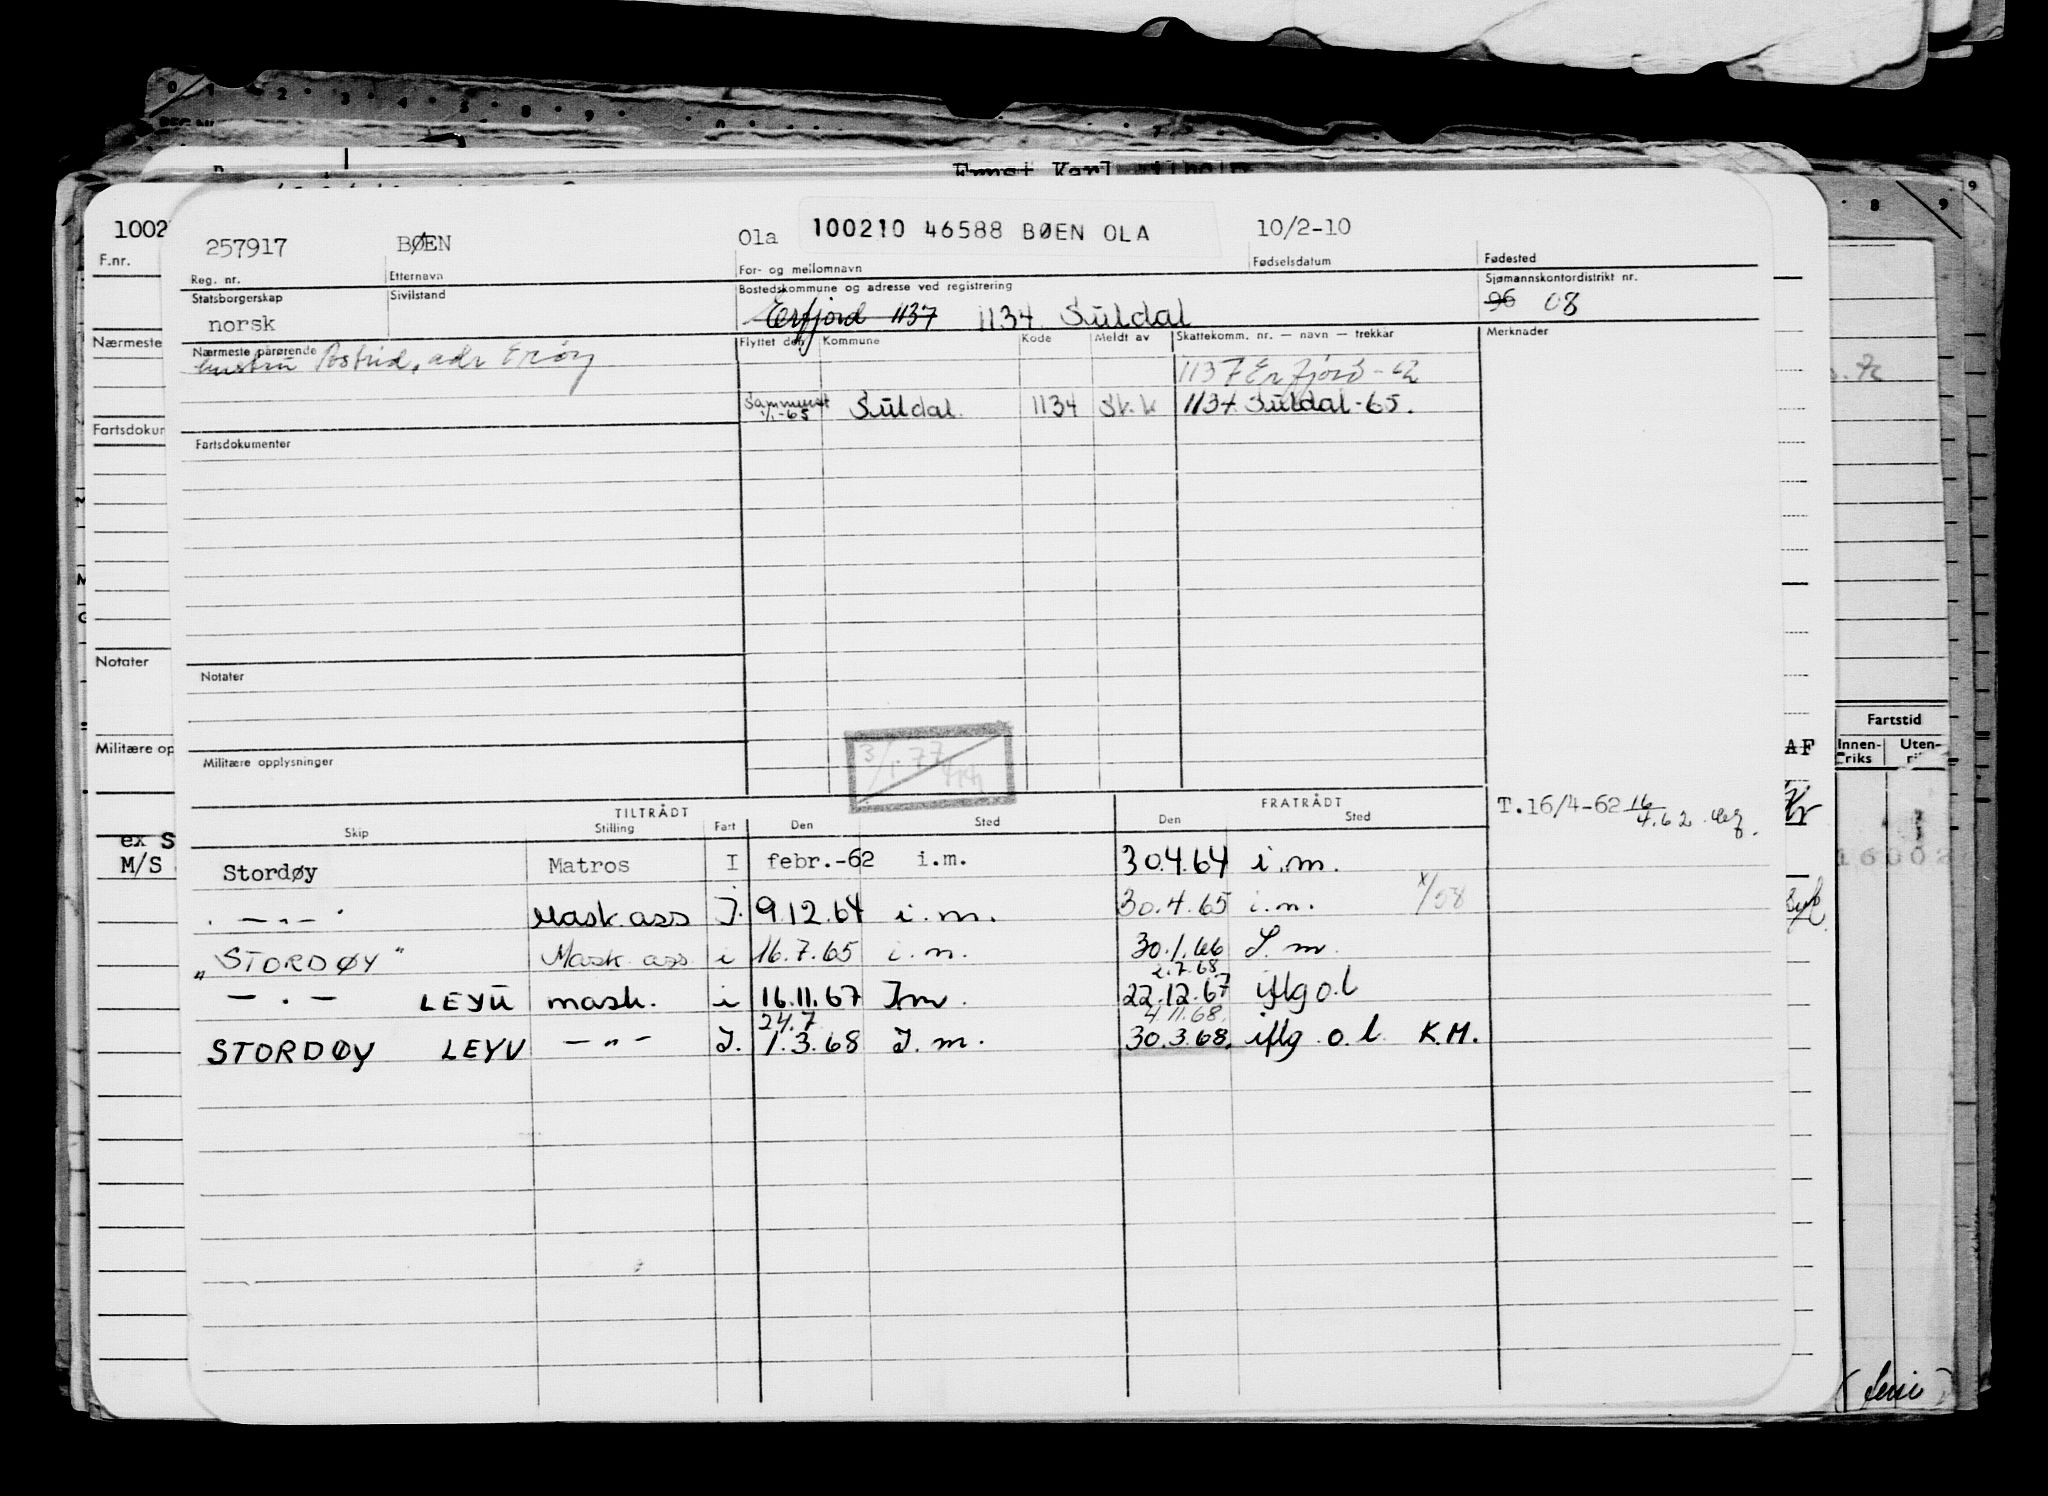 Ernst Karl
1002
F.nr.
257917 BØEN Ola 100210 46588 BØEN OLA 10/2-10
Reg. nr. Etternavn For- og mellomnavn Fødselsdatum Fødested
Statsborgerskap Sivilstand Bostedskommune og adresse ved registrering Sjømannskontordistrikt nr.
norsk Erfjord 1137 1134 Suldal 96 08
Nærmeste pårørende Flyttet den Kommune Kode Meldt av Skattekomm. nr. — navn — trekkår Merknader
hustru Astrid, adr Erøy 1137 Erfjord - 62
Sammensl 1/1-65 Suldal 1134 Sk.k 1134 Suldal-65.
Nærmeste
Fartsdokum
Fartsdokumenter
Notater
Notater
Militære op
Militære opplysninger
3/1.77
Fartstid
Innenriks Uten-
TILTRÅDT FRATRÅDT T.16/4-62 16/4.62
Skip Stilling Fart Den Sted Den Sted
ex S
M/S
Stordøy Matros I febr.-62 i.m. 30.4.64 i.m.
— „ — Mask.ass I. 9.12.64 i.m. 30.4.65 i.m. X/58
„STORDØY" Mask. ass i 16.7.65 i.m. 30.1.66 I.m.
2.7.68
— . — LEYU mask. i 16.11.67 Im. 22.12.67 iflg o.l
24.7 4.11.68.
STORDØY LEYV — „ — I. 1.3.68 I.m. 30.3.68. iflg. o.l. K.M.